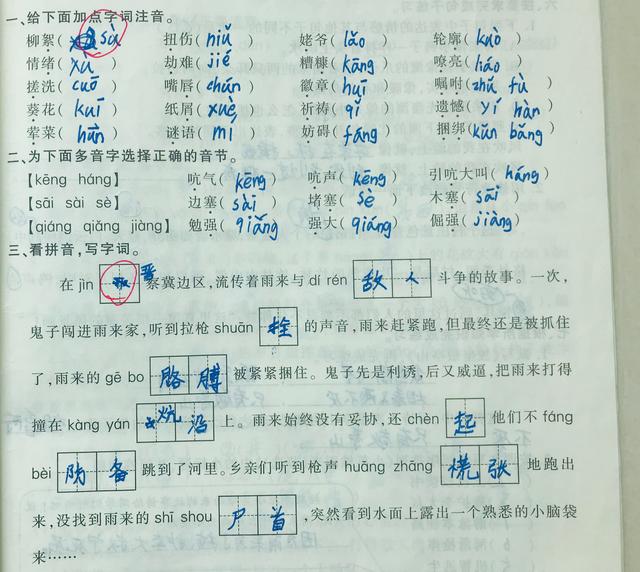 一、给下面加点字词注音。
柳絮( sù ) 扭伤( niǔ ) 姥爷( lǎo ) 轮廓( kuò )
情绪( xù ) 劫难( jié ) 糟糠( kāng ) 嘹亮( háo )
搓洗( cuō ) 嘴唇( chún ) 徽章( huī ) 嘱咐( zhǔ fù )
葵花( kuī ) 纸屑( xuè ) 祈祷( qǐ ) 遗憾( yí hàn )
荤菜( hūn ) 谜语( mí ) 妨碍( fáng ) 捆绑( kǔn bǎng )
二、为下面多音字选择正确的音节。
【kēng háng】 吭气( kēng ) 吭声( kēng ) 引吭大叫( háng )
【sāi sài sè】 边塞( sài ) 堵塞( sè ) 木塞( sāi )
【qiáng qiǎng jiàng】 勉强( qiǎng ) 强大( qiáng ) 倔强( jiàng )
三、看拼音,写字词。
在 jìn 晋 察冀边区,流传着雨来与 dí rén 敌人 斗争的故事。一次,
鬼子闯进雨来家,听到拉枪 shuān 栓 的声音,雨来赶紧跑,但最终还是被抓住
了,雨来的 gē bo 胳膊 被紧紧捆住。鬼子先是利诱,后又威逼,把雨来打得
撞在 kàng yán 炕沿 上。雨来始终没有妥协,还 chèn 起 他们不 fáng
bèi 防备 跳到了河里。乡亲们听到枪声 huāng zhāng 慌张 地跑出
来,没找到雨来的 shī shou 尸首 ,突然看到水面上露出一个熟悉的小脑袋
来……